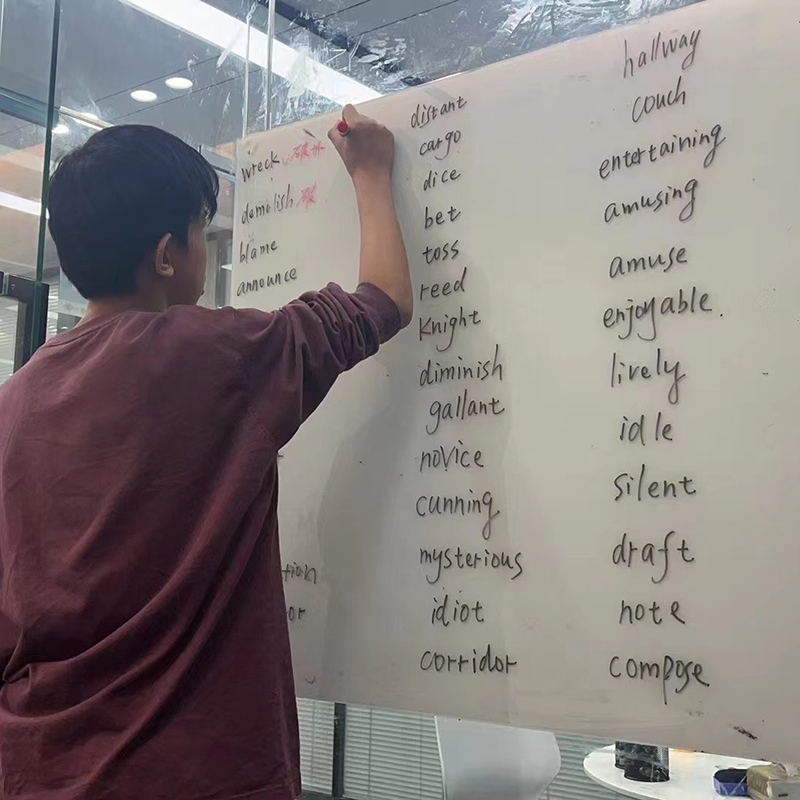 wreck 破坏
demolish 破
blame
announce
tion
or
distant
cargo
dice
bet
toss
reed
Knight
diminish
gallant
novice
cunning
mysterious
idiot
corridor
hallway
couch
entertaining
amusing
amuse
enjoyable.
lively
idle
silent
draft
note
compose